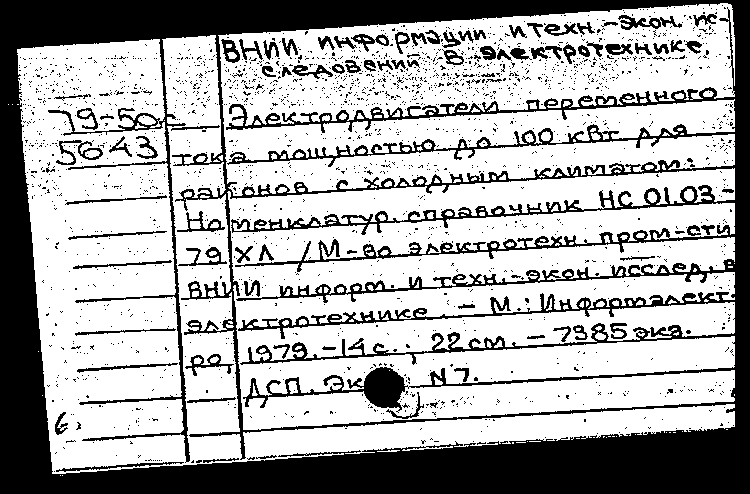 ВНИИ информации и техн.-экон. ис-
следований в электротехнике.
79-50с
5643
Электродвигатели переменного
тока мощностью до 100 кВт для
районов с холодным климатом:
Номенклатур. справочник НС 01.03-
79 ХЛ / М-во электротехн. пром-сти
ВНИИ информ. и техн.-экон. исслед. в
электротехнике. - М.: Информэлект-
ро, 1979. - 14 с.; 22 см. - 7385 экз.
ДСП. Эк N 7.
6.